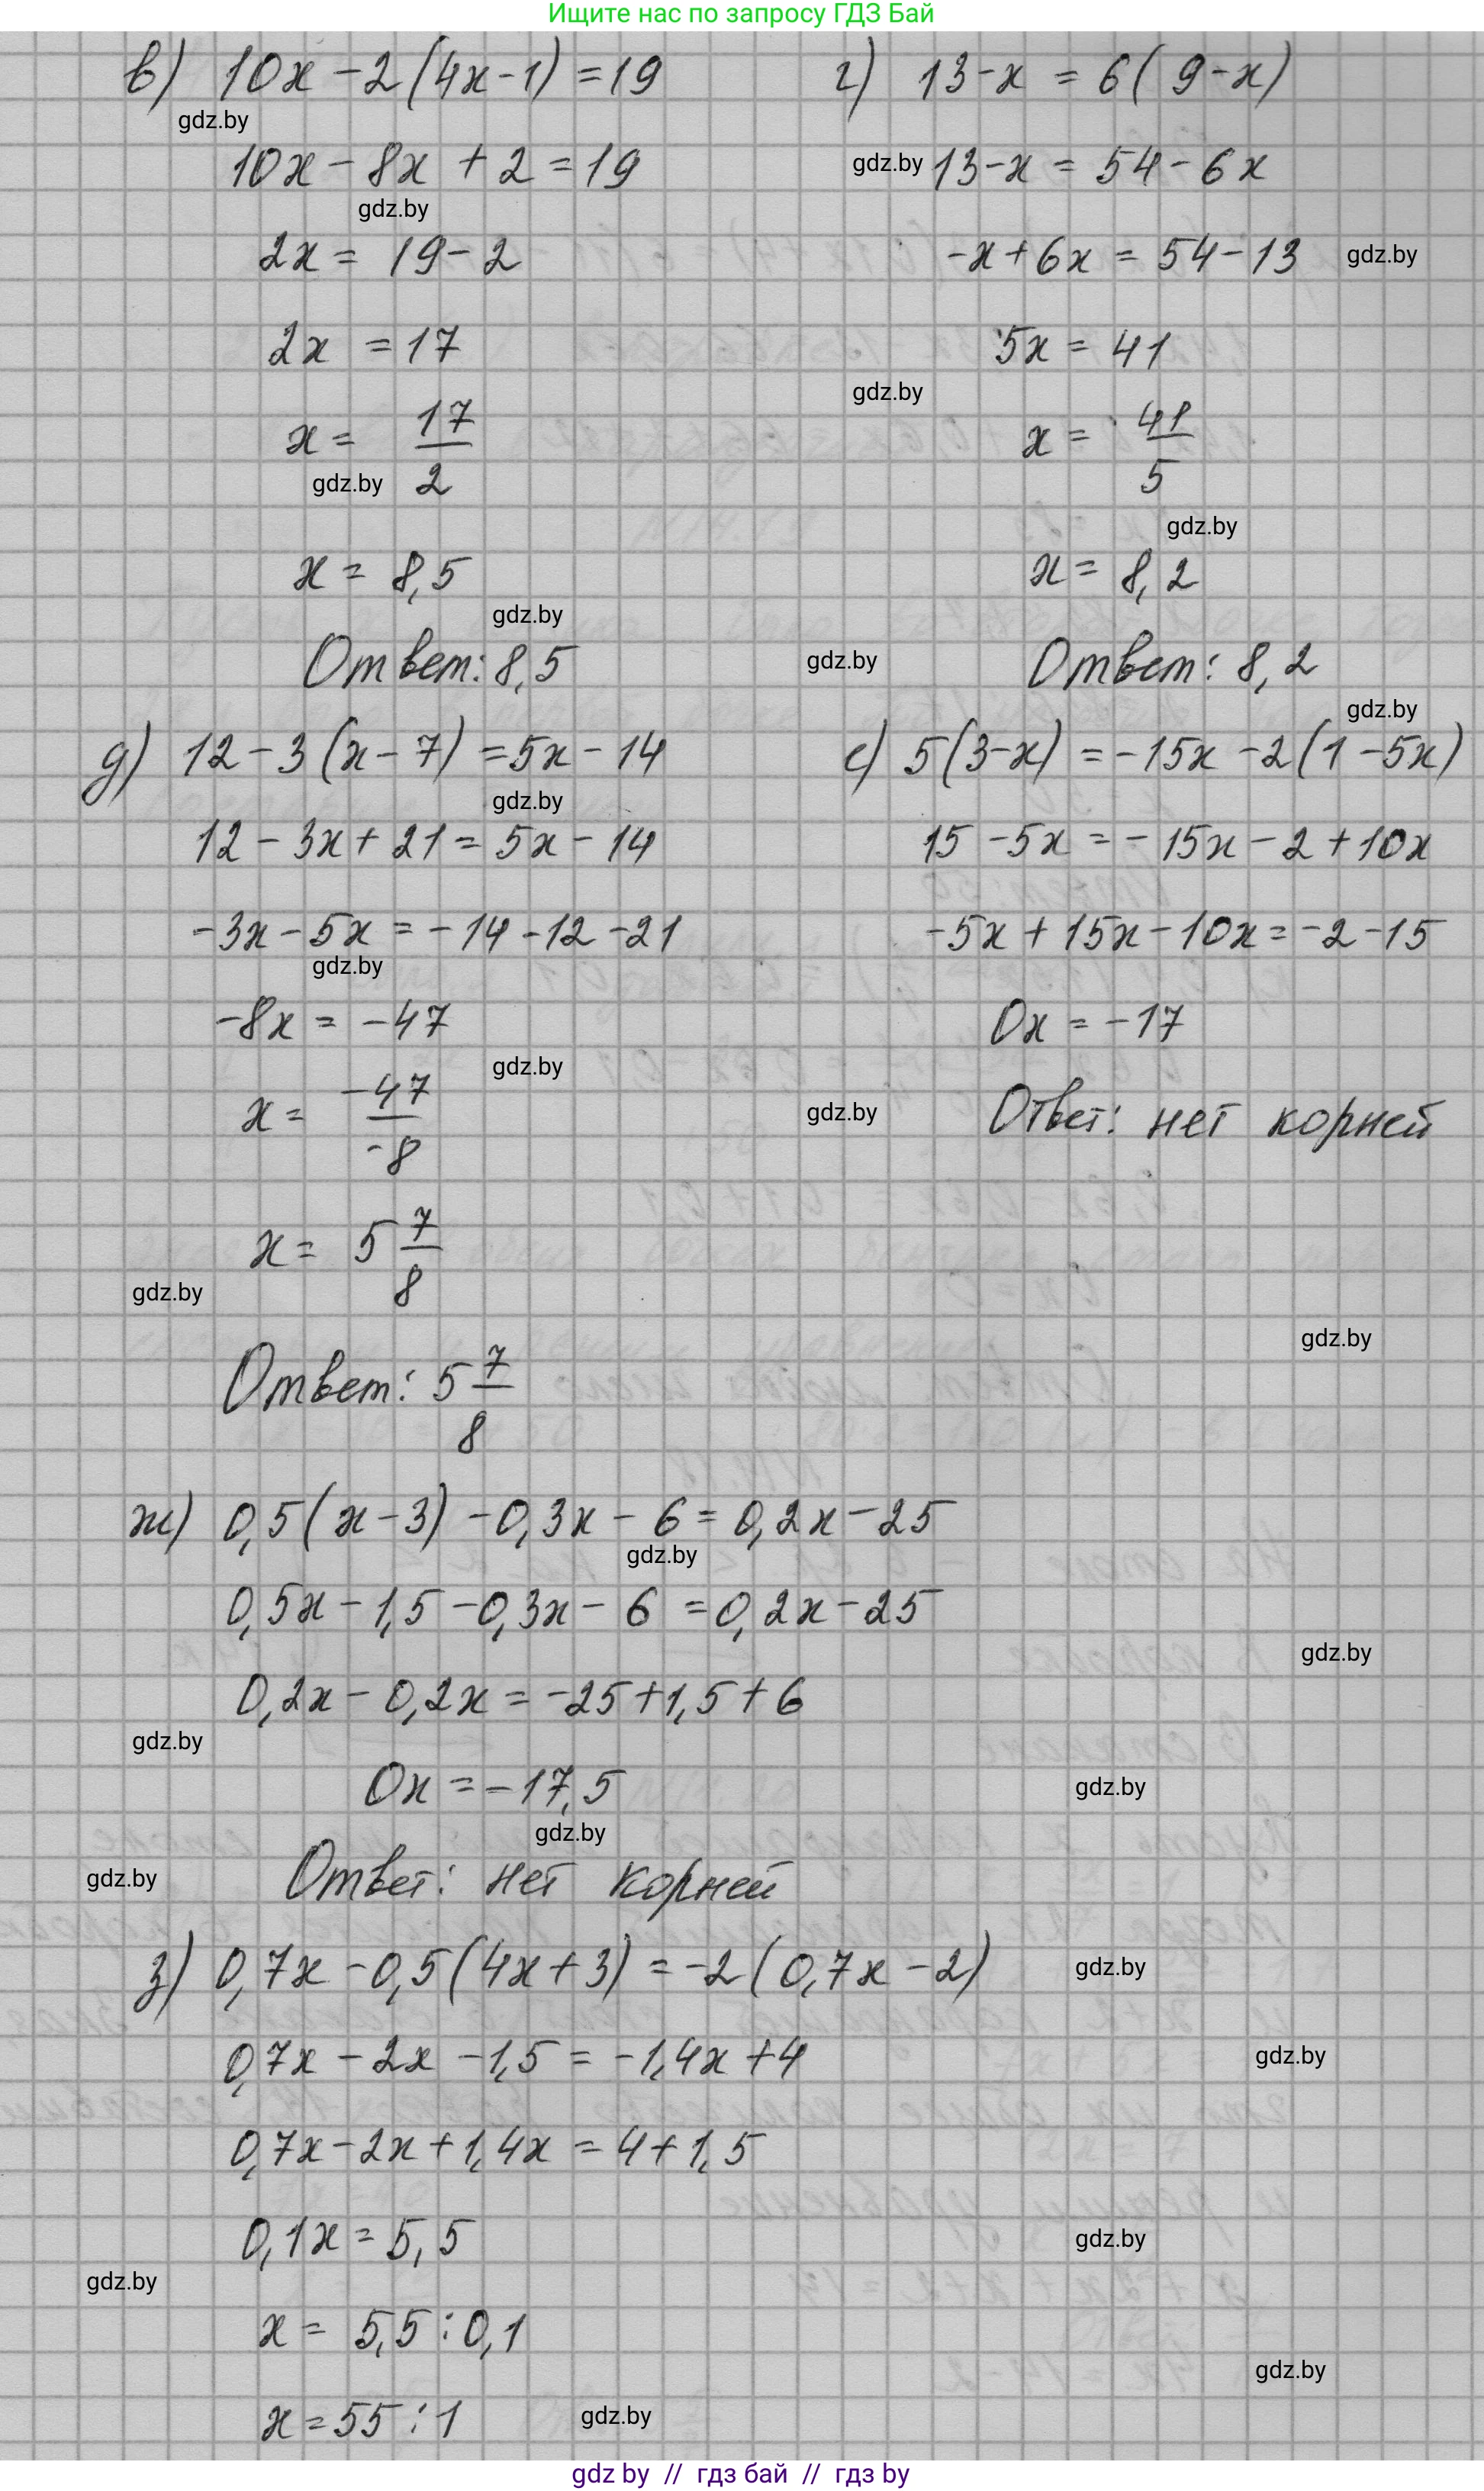 Ищите нас по запросу ГДЗ Бай
в) 10x - 2(4x-1) = 19
gdz.by
10x - 8x + 2 = 19
gdz.by
2x = 19 - 2
2x = 17
x = 17/2
gdz.by
x = 8,5
gdz.by
Ответ: 8,5
г) 13-x = 6(9-x)
gdz.by
13-x = 54-6x
-x+6x = 54-13
gdz.by
5x = 41
gdz.by
x = 41/5
gdz.by
x = 8,2
gdz.by
Ответ: 8,2
gdz.by
д) 12-3(x-7) = 5x-14
gdz.by
12-3x+21 = 5x-14
-3x-5x = -14-12-21
gdz.by
-8x = -47
gdz.by
x = -47/-8
x = 5 7/8
gdz.by
Ответ: 5 7/8
е) 5(3-x) = -15x-2(1-5x)
15-5x = -15x-2+10x
-5x+15x-10x = -2-15
0x = -17
gdz.by
Ответ: нет корней
gdz.by
ж) 0,5(x-3)-0,3x-6 = 0,2x-25
gdz.by
0,5x-1,5-0,3x-6 = 0,2x-25
gdz.by
0,2x-0,2x = -25+1,5+6
gdz.by
0x = -17,5
gdz.by
gdz.by
gdz.by
Ответ: нет корней
з) 0,7x-0,5(4x+3) = -2(0,7x-2)
gdz.by
0,7x-2x-1,5 = -1,4x+4
gdz.by
0,7x-2x+1,4x = 4+1,5
0,1x = 5,5
gdz.by
gdz.by
x = 5,5:0,1
gdz.by
x = 55:1
gdz.by
gdz by // гдз бай // гдз by